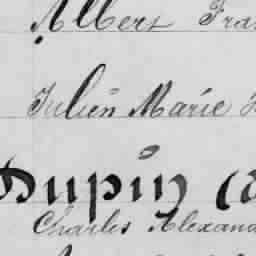 Albert Fra
Julien Marie
Dupin (a
Charles Alexand